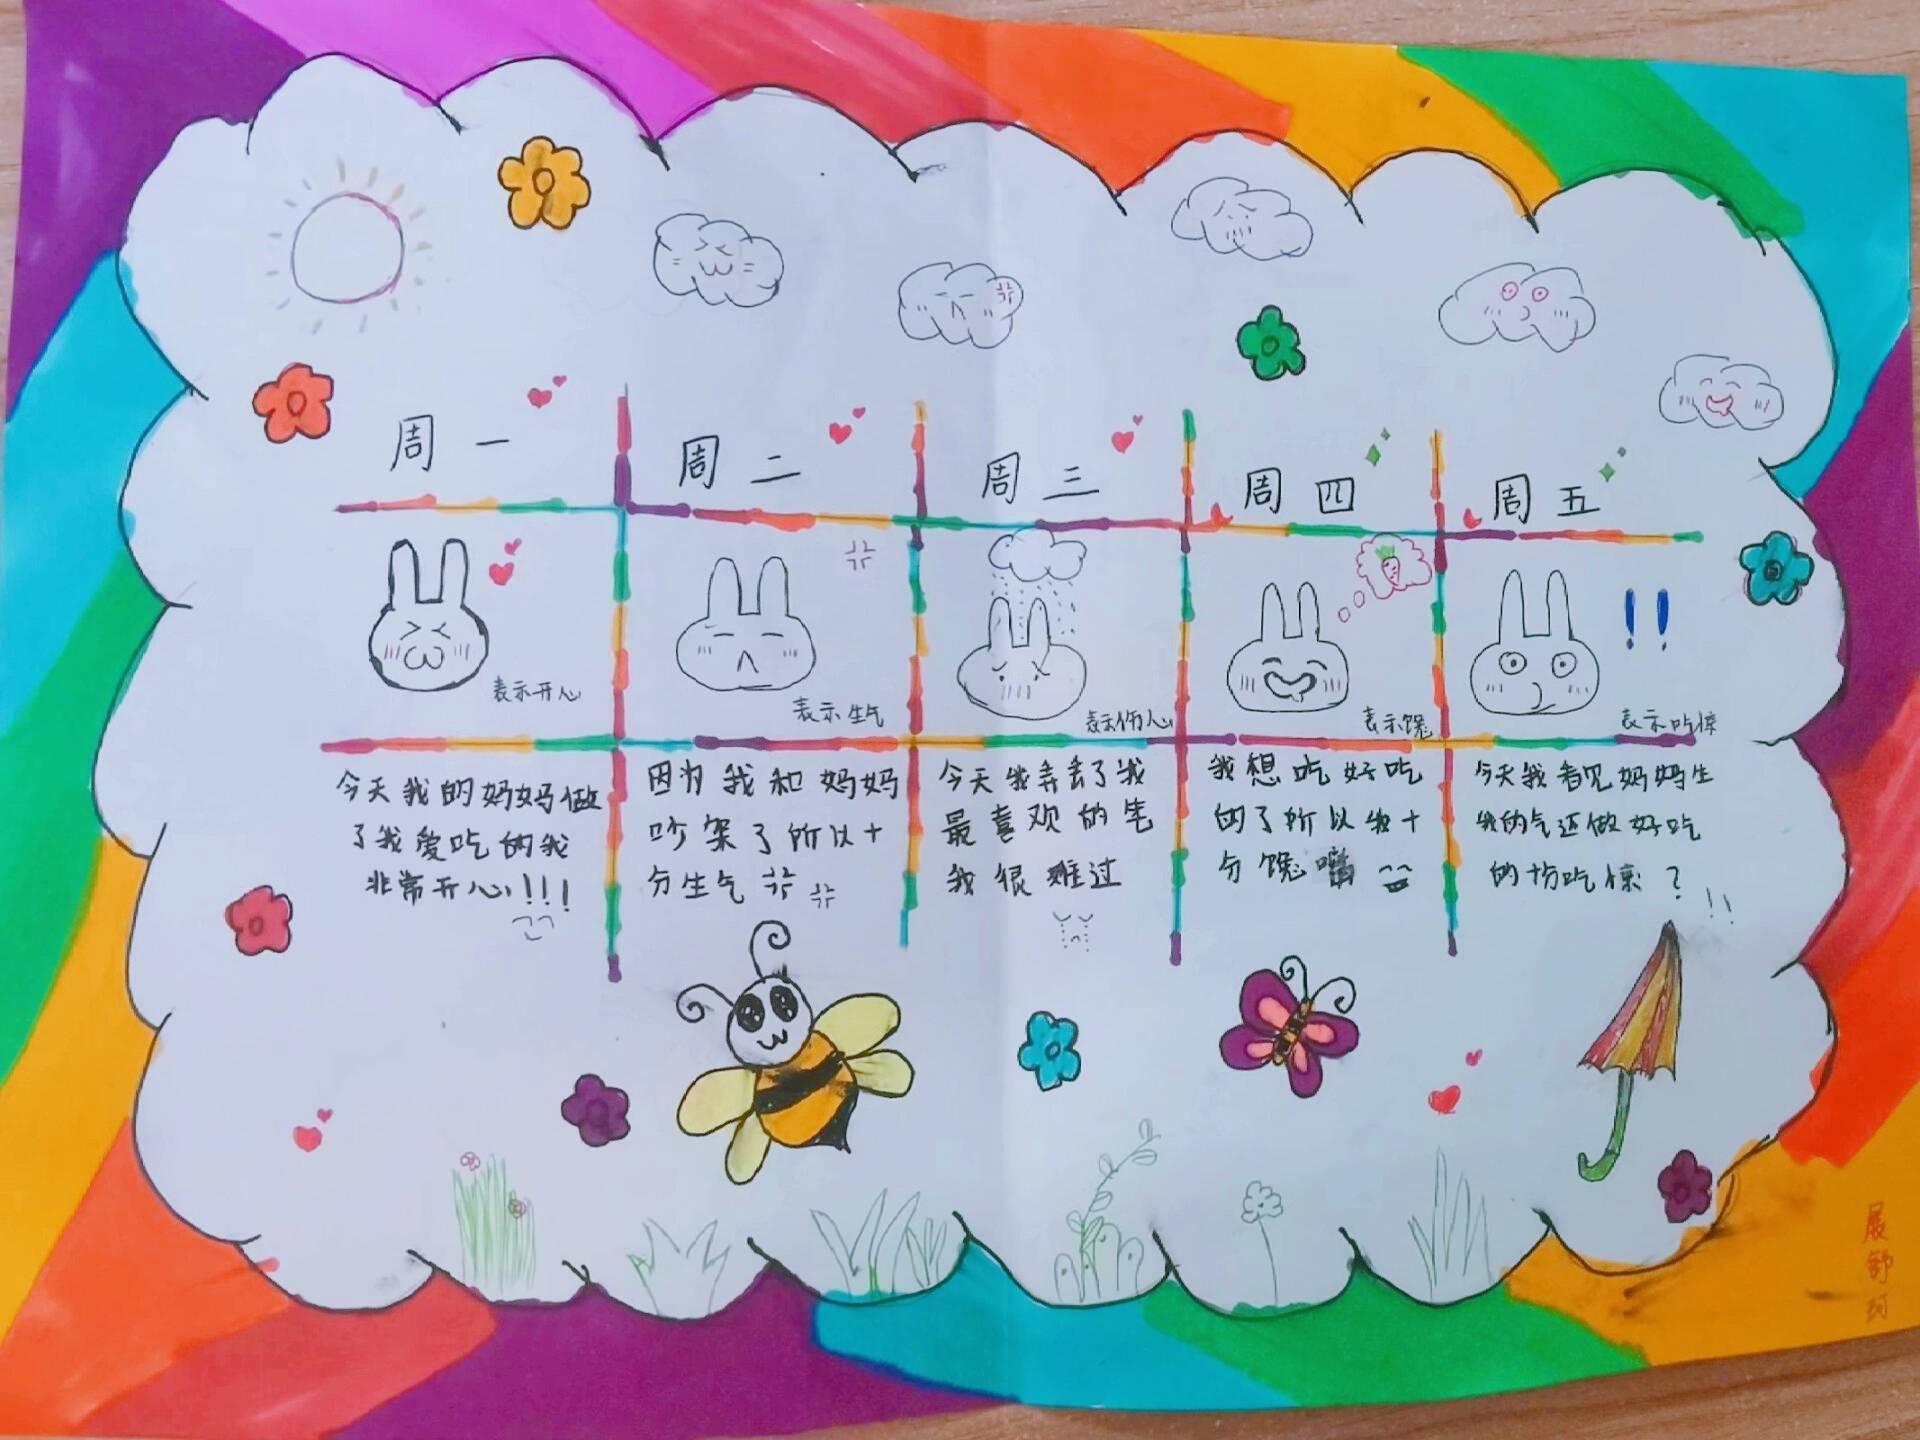 周一
周二
周三
周四
周五
表示开心
表示生气
表示伤心
表示馋
表示吃惊
今天我的妈妈做
了我爱吃的我
非常开心!!!
因为我和妈妈
吵架了所以十
分生气
今天我弄丢了我
最喜欢的笔
我很难过
我想吃好吃
的了所以我十
分馋嘴
今天我看见妈妈生
我的气还做好吃
的 吃惊?!!
展舒